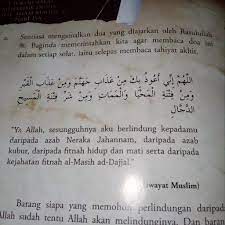 Sentiasa mengamalkan doa yang diajarkan oleh Rasulullah
ﷺ. Baginda memerintahkan kita agar membaca doa ini
dalam setiap solat, iaitu selepas membaca tahiyat akhir,
اللَّهُمَّ إِنِّي أَعُوذُ بِكَ مِنْ عَذَابِ جَهَنَّمَ وَمِنْ عَذَابِ الْقَبْرِ
وَمِنْ فِتْنَةِ الْمَحْيَا وَالْمَمَاتِ وَمِنْ شَرِّ فِتْنَةِ الْمَسِيحِ
الدَّجَّالِ
"Ya Allah, sesungguhnya aku berlindung kepadamu
daripada azab Neraka Jahannam, daripada azab
kubur, daripada fitnah hidup dan mati serta daripada
kejahatan fitnah al-Masih ad-Dajjal."
wayat Muslim)
Barang siapa yang memohon perlindungan daripada
Allah sudah tentu Allah akan melindunginya. Dan baran